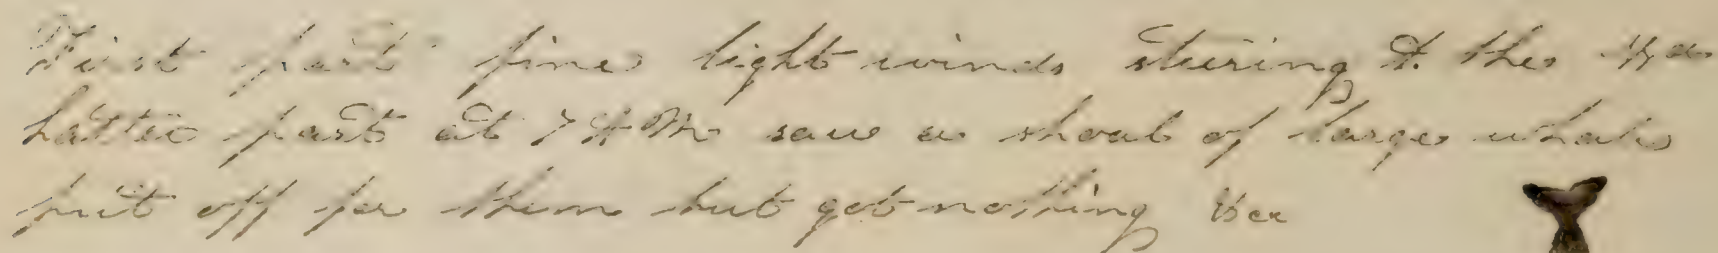 First part fine light winds steering to the
Latter part at 7 AM saw a shoal of large whales
put off for them but got nothing